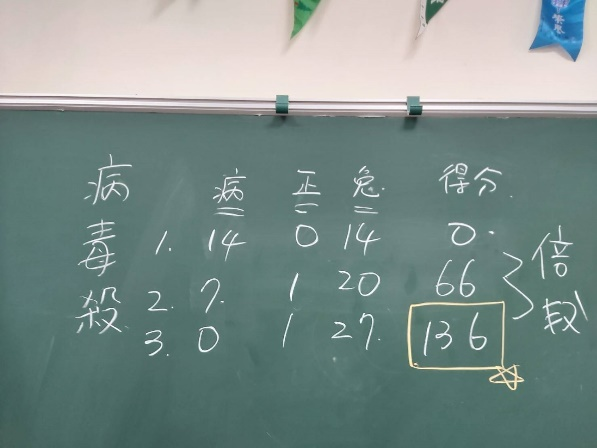 病毒殺
病 正 兔 得分.
1. 14 0 14 0.
2. 7. 1 20 66
3. 0 1 27. 136
倍